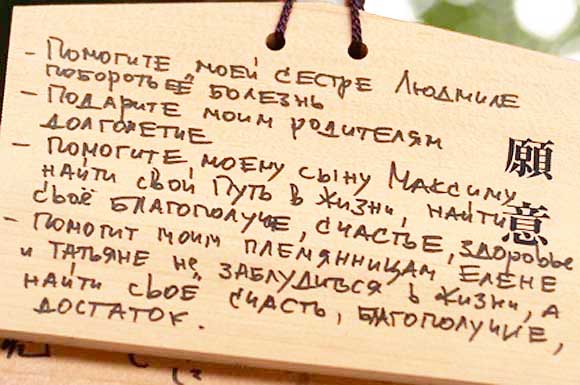 - ПОМОГИТЕ МОЕЙ СЕСТРЕ ЛЮДМИЛЕ
ПОБОРОТЬ ЕЁ БОЛЕЗНЬ
- ПОДАРИТЕ МОИМ РОДИТЕЛЯМ
ДОЛГОЛЕТИЕ
- ПОМОГИТЕ МОЕМУ СЫНУ МАКСИМУ
НАЙТИ СВОЙ ПУТЬ В ЖИЗНИ, НАЙТИ
СВОЁ БЛАГОПОЛУЧИЕ, СЧАСТЬЕ, ЗДОРОВЬЕ
- ПОМОГИТ МОИМ ПЛЕМЯННИЦАМ ЕЛЕНЕ
И ТАТЬЯНЕ НЕ ЗАБЛУДИВСЯ В ЖИЗНИ, А
НАЙТИ СВОЁ СЧАСТЬ, БЛАГОПОЛУЧИЕ,
ДОСТАТОК.
願意